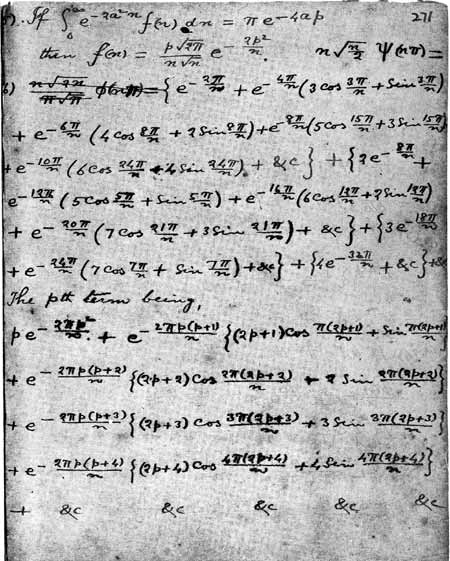 ). If ∫₀^∞ e^{-2a²n} f(n) dn = π e^{-4ap} 271
then f(n) = p√2π/n√n e^{-2p²/n}. n√(n/2) Ψ(nπ) =
) = { e^{-2π/n} + e^{-4π/n} (3 cos 3π/n + Sin 3π/n)
+ e^{-6π/n} (4 cos 8π/n + 2 Sin 8π/n) + e^{-8π/n} (5 cos 15π/n + 3 Sin 15π/n)
+ e^{-10π/n} (6 cos 24π/n + 4 Sin 24π/n) + &c } + { 2e^{-8π/n} +
e^{-12π/n} (5 cos 5π/n + Sin 5π/n) + e^{-16π/n} (6 cos 12π/n + 2 Sin 12π/n)
+ e^{-20π/n} (7 cos 21π/n + 3 Sin 21π/n) + &c } + { 3e^{-18π/n}
+ e^{-24π/n} (7 cos 7π/n + Sin 7π/n) + &c } + { 4e^{-32π/n} + &c } + &c
The pth term being,
p e^{-2πp²/n} + e^{-2πp(p+1)/n} { (2p+1) cos π(2p+1)/n + Sin π(2p+1)/n }
+ e^{-2πp(p+2)/n} { (2p+2) cos 2π(2p+2)/n + 2 Sin 2π(2p+2)/n }
+ e^{-2πp(p+3)/n} { (2p+3) cos 3π(2p+3)/n + 3 Sin 3π(2p+3)/n }
+ e^{-2πp(p+4)/n} { (2p+4) cos 4π(2p+4)/n + 4 Sin 4π(2p+4)/n }
+ &c &c &c &c &c